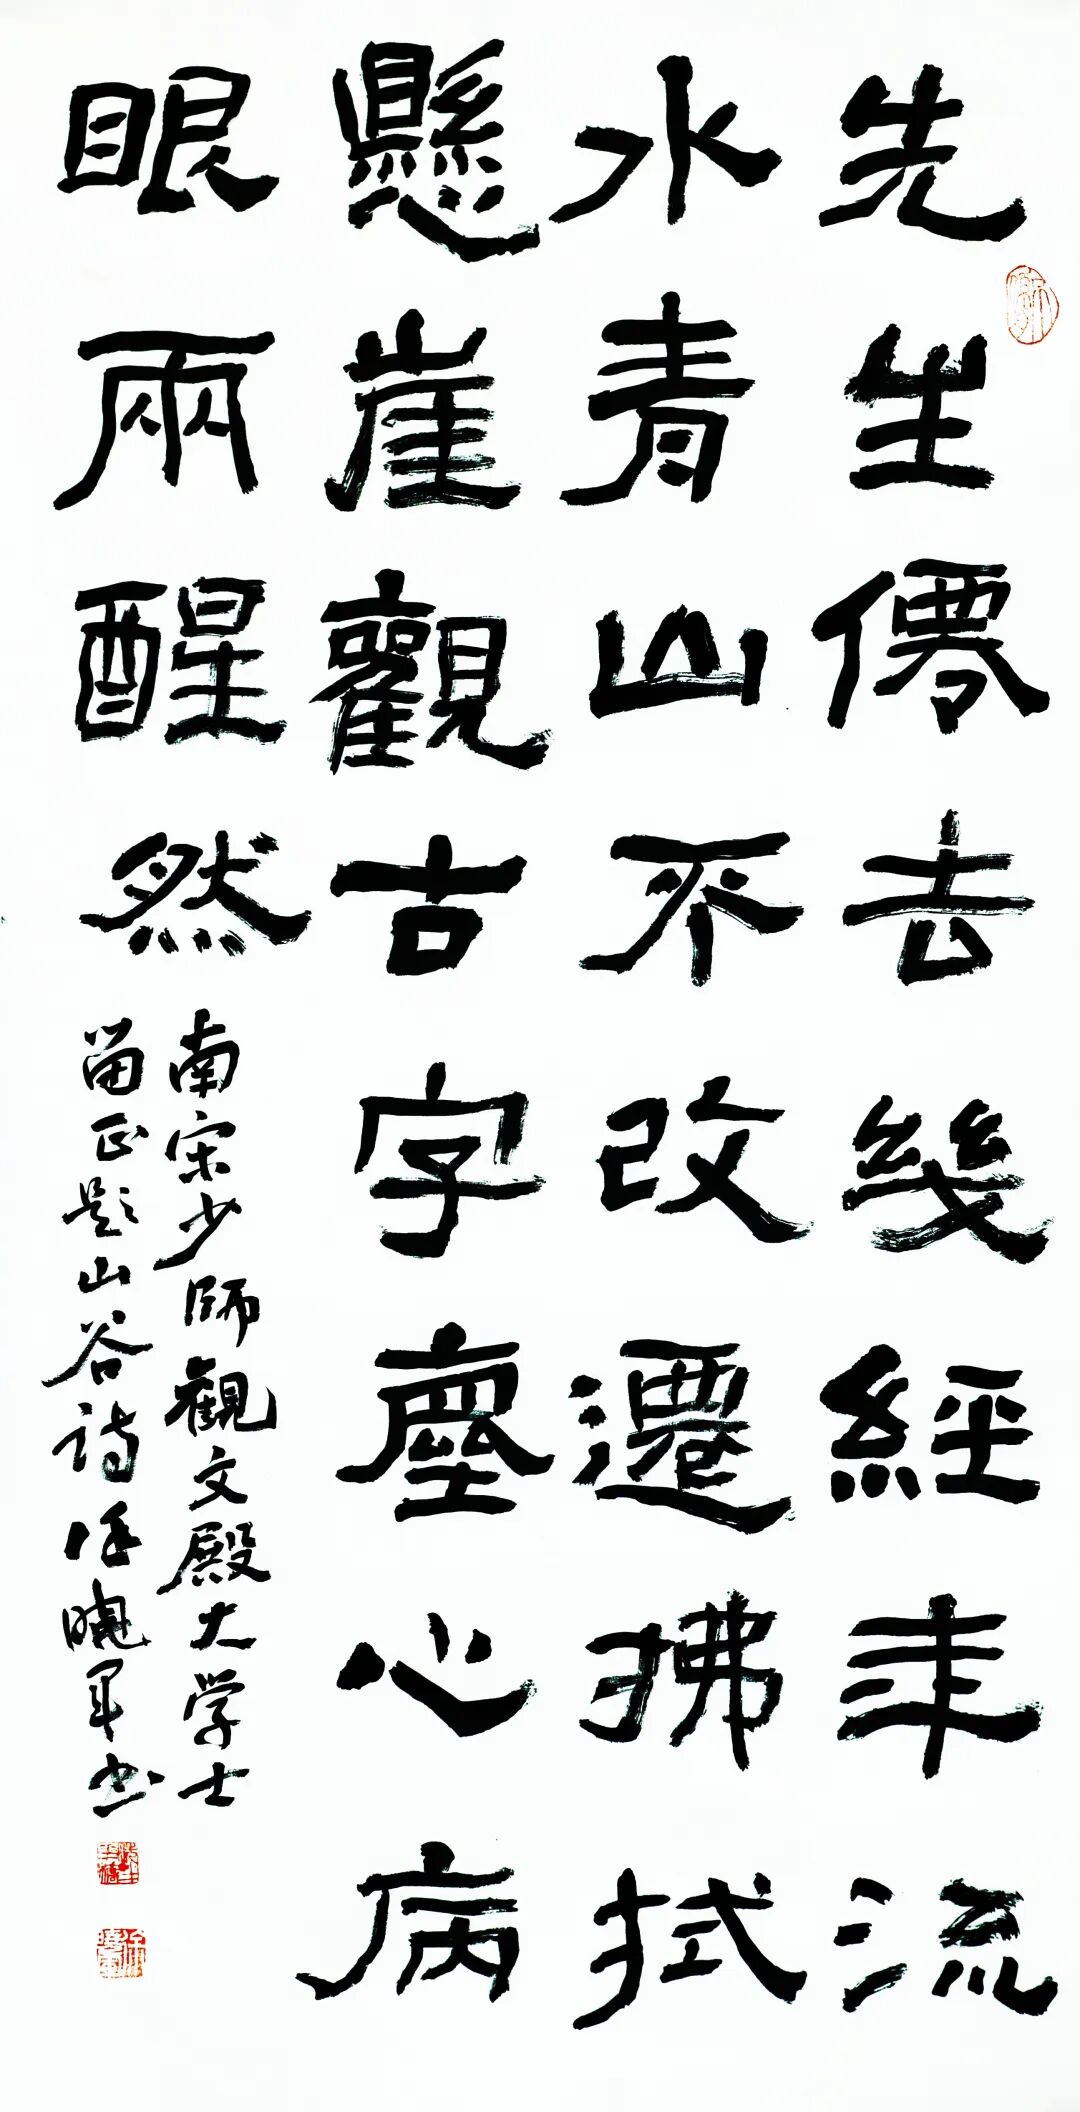 先生僊去幾經年流
水青山不改遷拂拭
懸崖觀古字塵心病
眼兩醒然
南宋少師觀文殿大学士
留正题山谷诗徐曉軍书